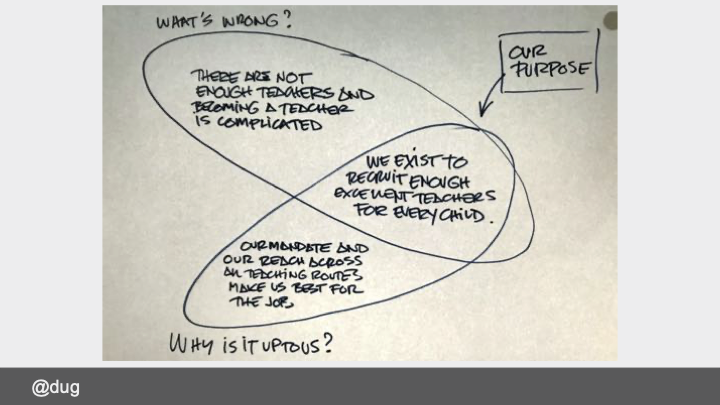 WHAT'S WRONG?
OUR
PURPOSE
THERE ARE NOT
ENOUGH TEACHERS AND
BECOMING A TEACHER
IS COMPLICATED
WE EXIST TO
RECRUIT ENOUGH
EXCELLENT TEACHERS
FOR EVERY CHILD.
OUR MANDATE AND
OUR REACH ACROSS
ALL TEACHING ROUTES
MAKE US BEST FOR
THE JOB.
WHY IS IT UP TO US?
@dug